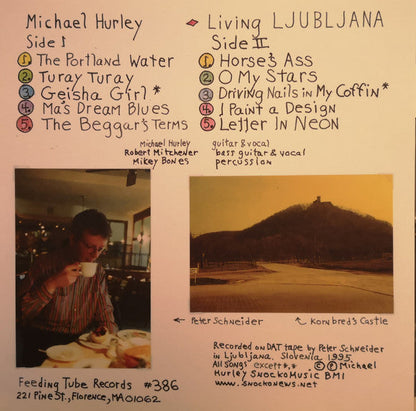 Michael Hurley
Living LJUBLJANA
Side I
1. The Portland Water
2. Turay Turay
3. Geisha Girl *
4. Ma's Dream Blues
5. The Beggar's Terms
Side II
1. Horse's Ass
2. O My Stars
3. Driving Nails in My Coffin*
4. I Paint a Design
5. Letter In Neon
Michael Hurley guitar & vocal
Robert Mitchener bass guitar & vocal
Mikey Bones percussion
← Peter Schneider
Kornbred's Castle
Recorded on DAT tape by Peter Schneider
in Ljubljana. Slovenia 1995
All songs except *,* © ℗ Michael
Hurley SnockoMusic BMI
www.snockonews.net
Feeding Tube Records #386
221 Pine St., Florence, MA 01062